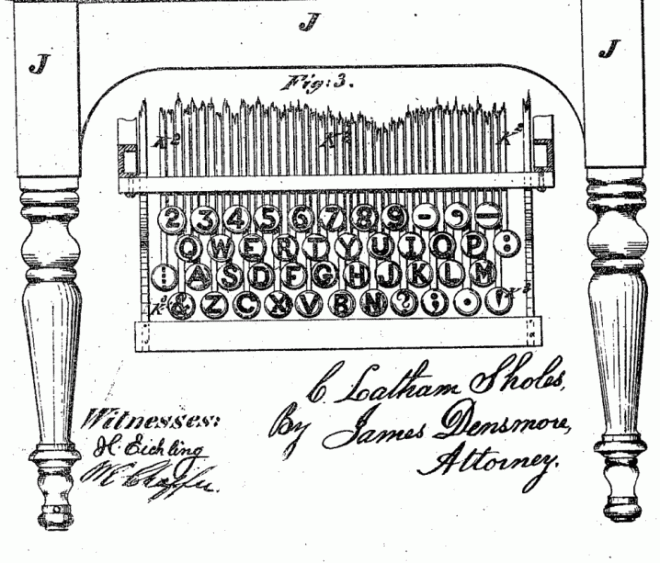 J
J J
Fig: 3.
K² K² K²
2 3 4 5 6 7 8 9 - , —
Q W E R T Y U I O P :
¦ A S D F G H J K L M
K² & Z C X V B N ? ; . ' K²
C. Latham Sholes,
By James Densmore,
Attorney.
Witnesses:
H. Eichling